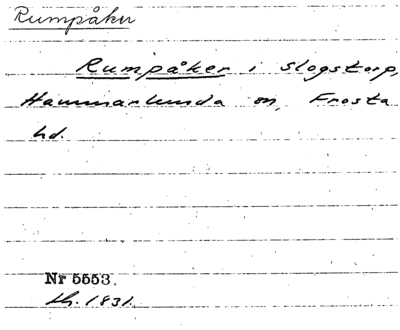 Rumpåker
Rumpåker i Slogstorp,
Hammarlunda sn, Frosta
hd.
Nr 5553.
1831.